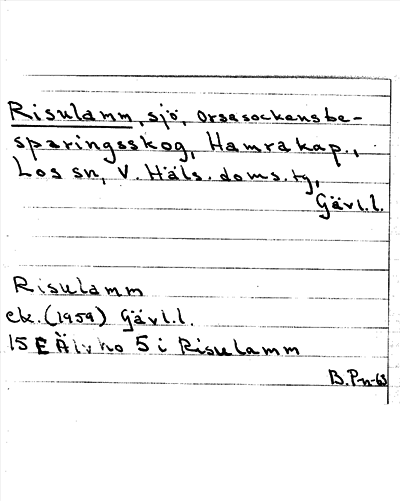 Risulamm, sjö, Orsasockensbe-
sparingsskog, Hamra kap.,
Los sn, V. Häls. doms. tg,
Gävl.l.
Risulamm
ek. (1959) Gävl.l.
15E Älvho 5 i Risulamm
B.P-n-63